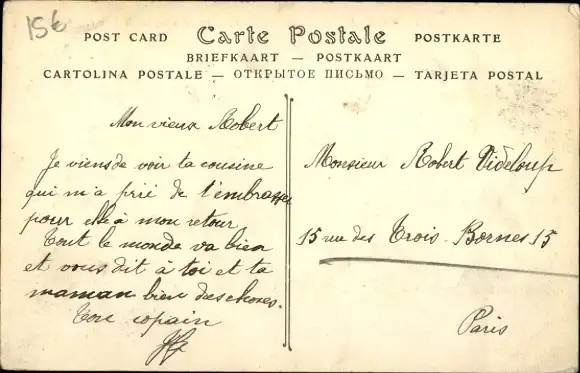 15€
Carte Postale
POST CARD
POSTKARTE
BRIEFKAART — POSTKAART
CARTOLINA POSTALE — ОТКРЫТОЕ ПИСЬМО — TARJETA POSTAL
Mon vieux Robert
Je viens de voir ta cousine
qui m'a prié de t'embrasser
pour elle à mon retour
Tout le monde va bien
et vous dit à toi et ta
maman bien des choses.
Ton copain
Monsieur Robert Videloup
15 rue des Trois-Bornes 15
Paris